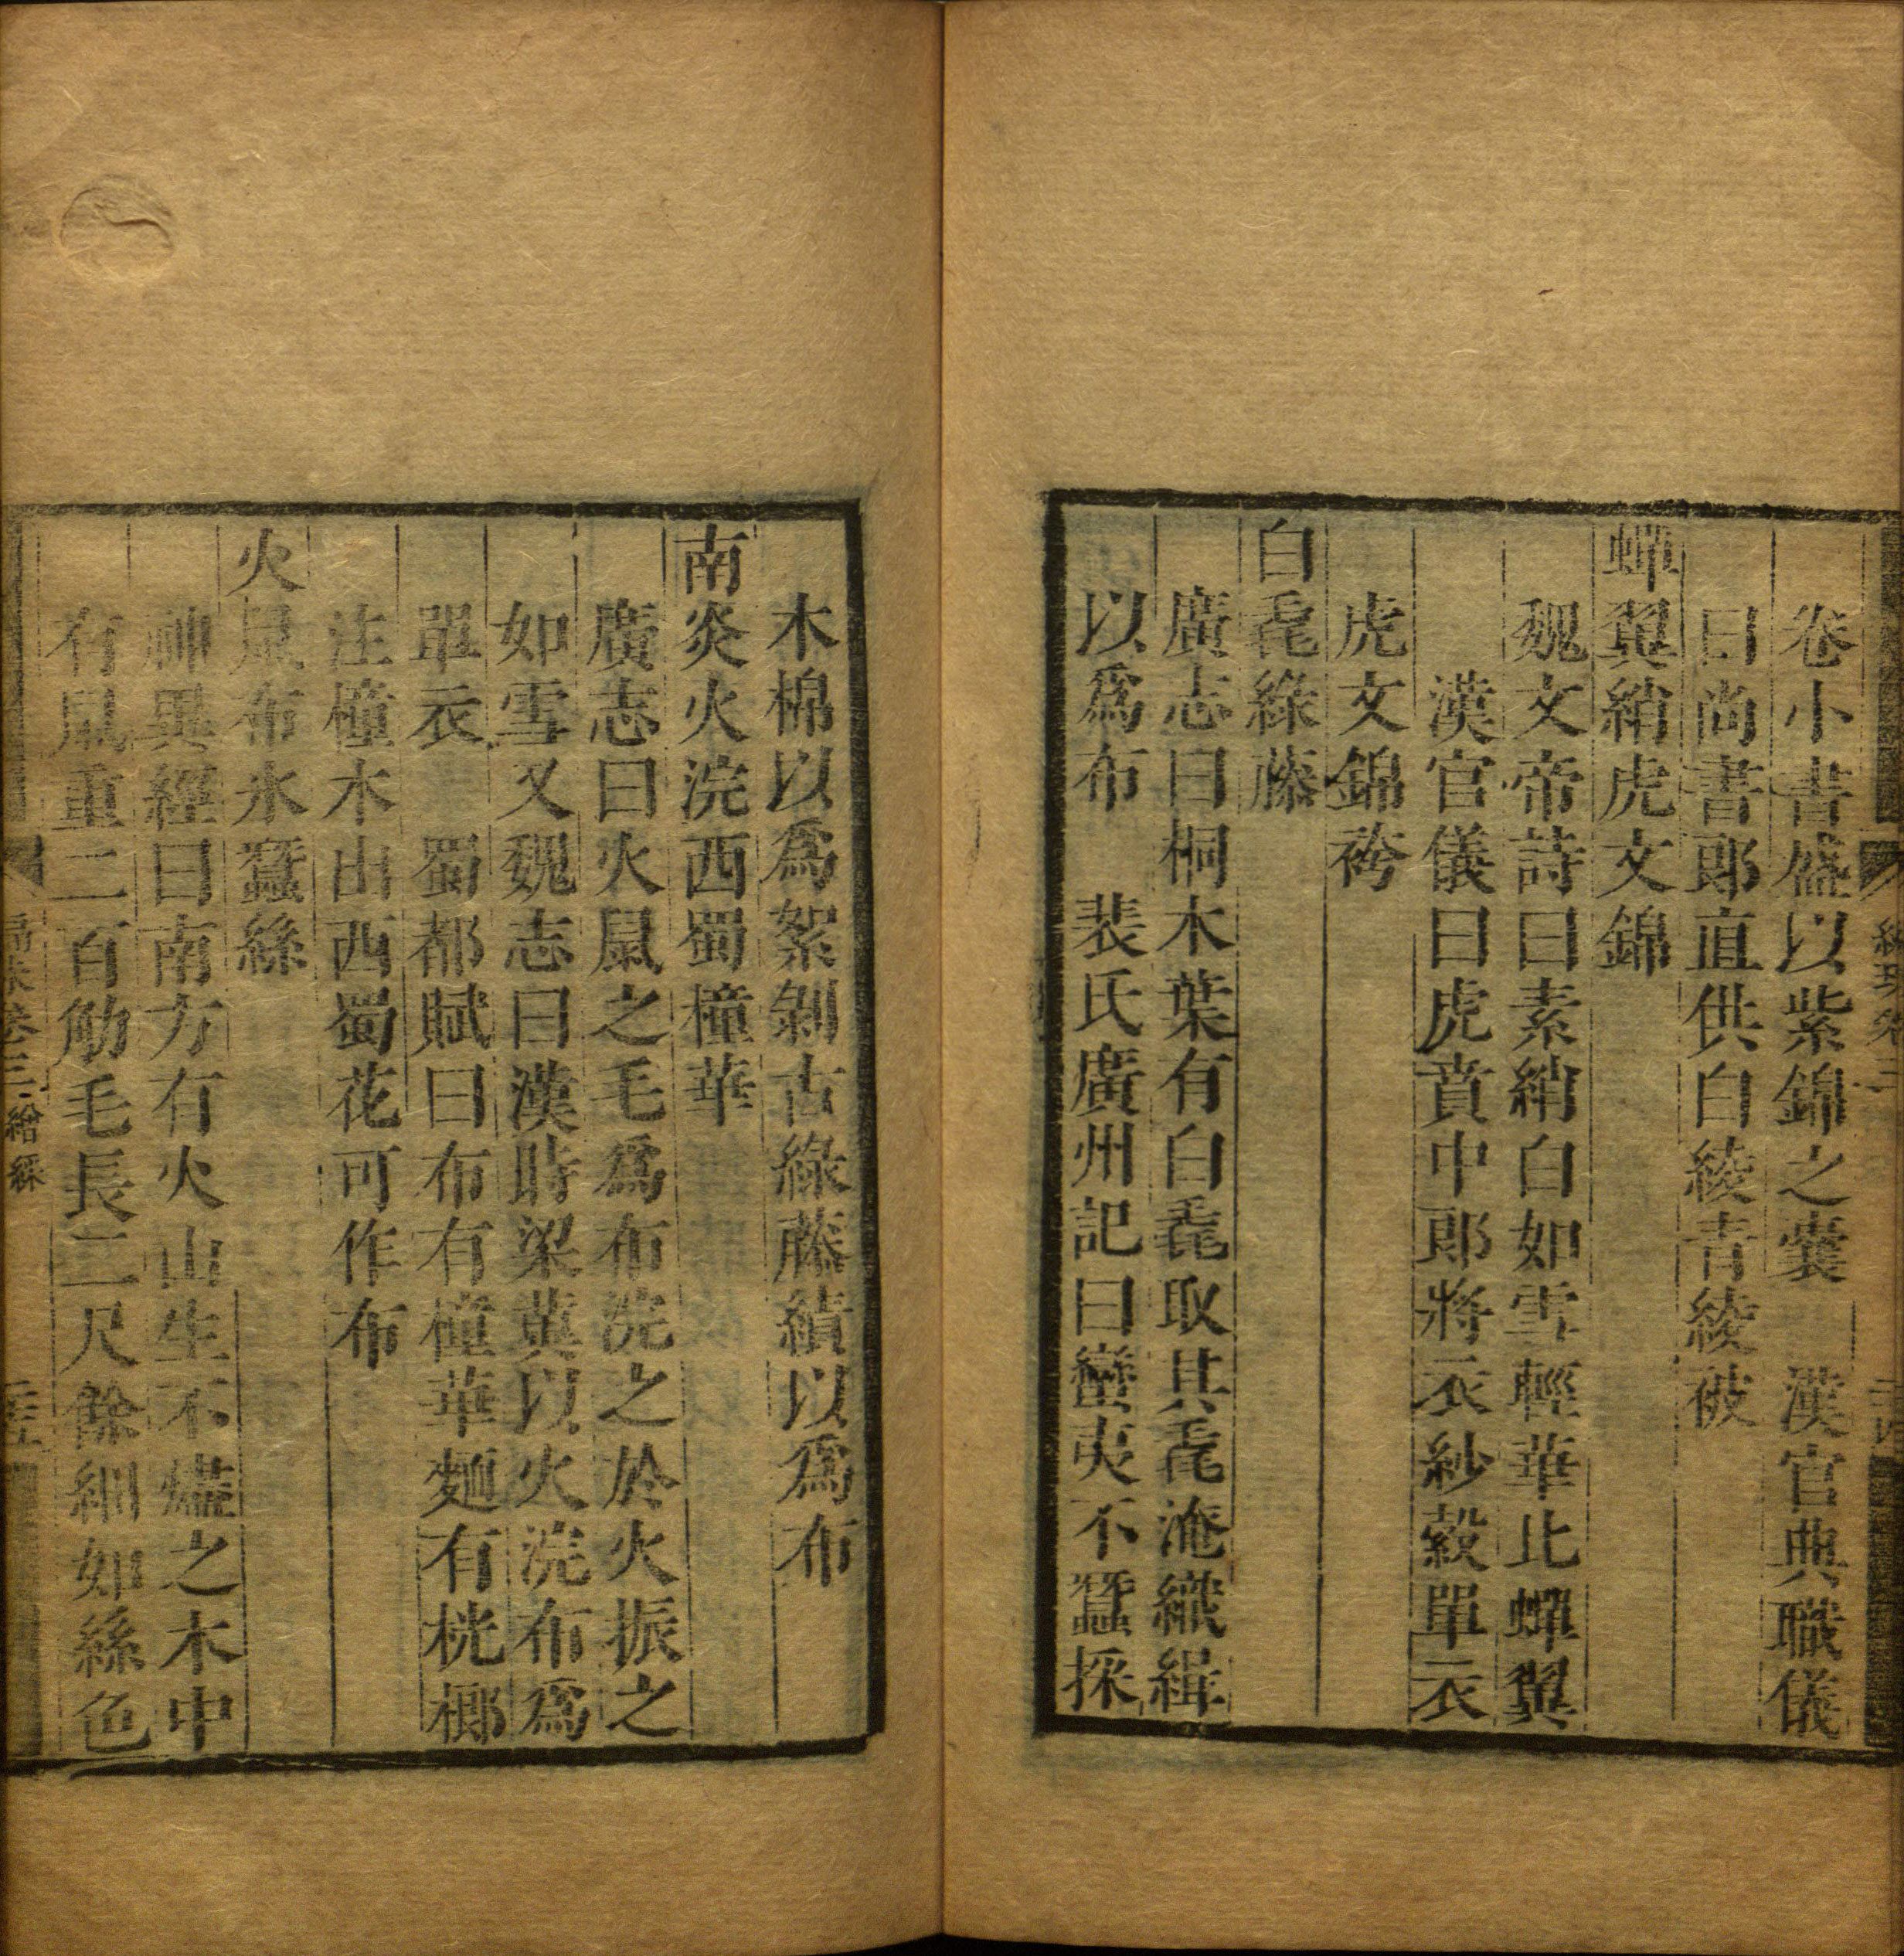 卷小書盛以紫錦之囊　漢官典職儀
曰尚書郎直供白綾青綾被
蟬翼綃虎文錦
魏文帝詩曰素綃白如雪輕華比蟬翼
漢官儀曰虎賁中郎將衣紗縠單衣
虎文錦袴
白毳綠藤
廣志曰桐木葉有白毳取其毳淹織緝
以爲布　裴氏廣州記曰蠻夷不蠶採
木棉以爲絮剝古綠藤績以爲布
南炎火浣西蜀橦華
廣志曰火鼠之毛爲布浣之於火振之
如雪又魏志曰漢時梁冀以火浣布爲
單衣　蜀都賦曰布有橦華麫有桄榔
注橦木出西蜀花可作布
火鼠布氷蠶絲
神異經曰南方有火山生不燼之木中
有鼠重二百觔毛長二尺餘細如絲色
卷三 繒綵